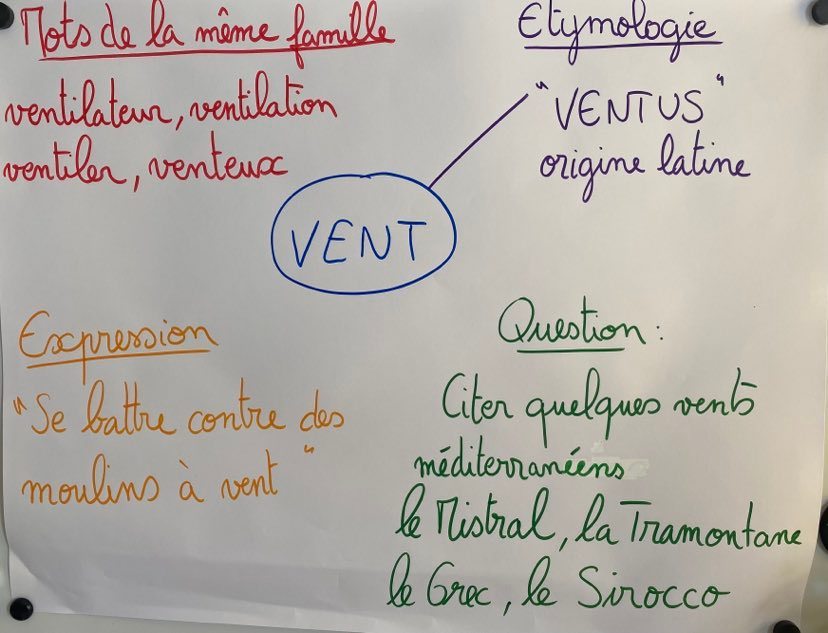 Mots de la même famille
ventilateur, ventilation
ventiler, venteux
Etymologie
"VENTUS"
origine latine
VENT
Expression
"Se battre contre des
moulins à vent"
Question :
Citer quelques vents
méditerranéens
le Mistral, la Tramontane
le Grec, le Sirocco